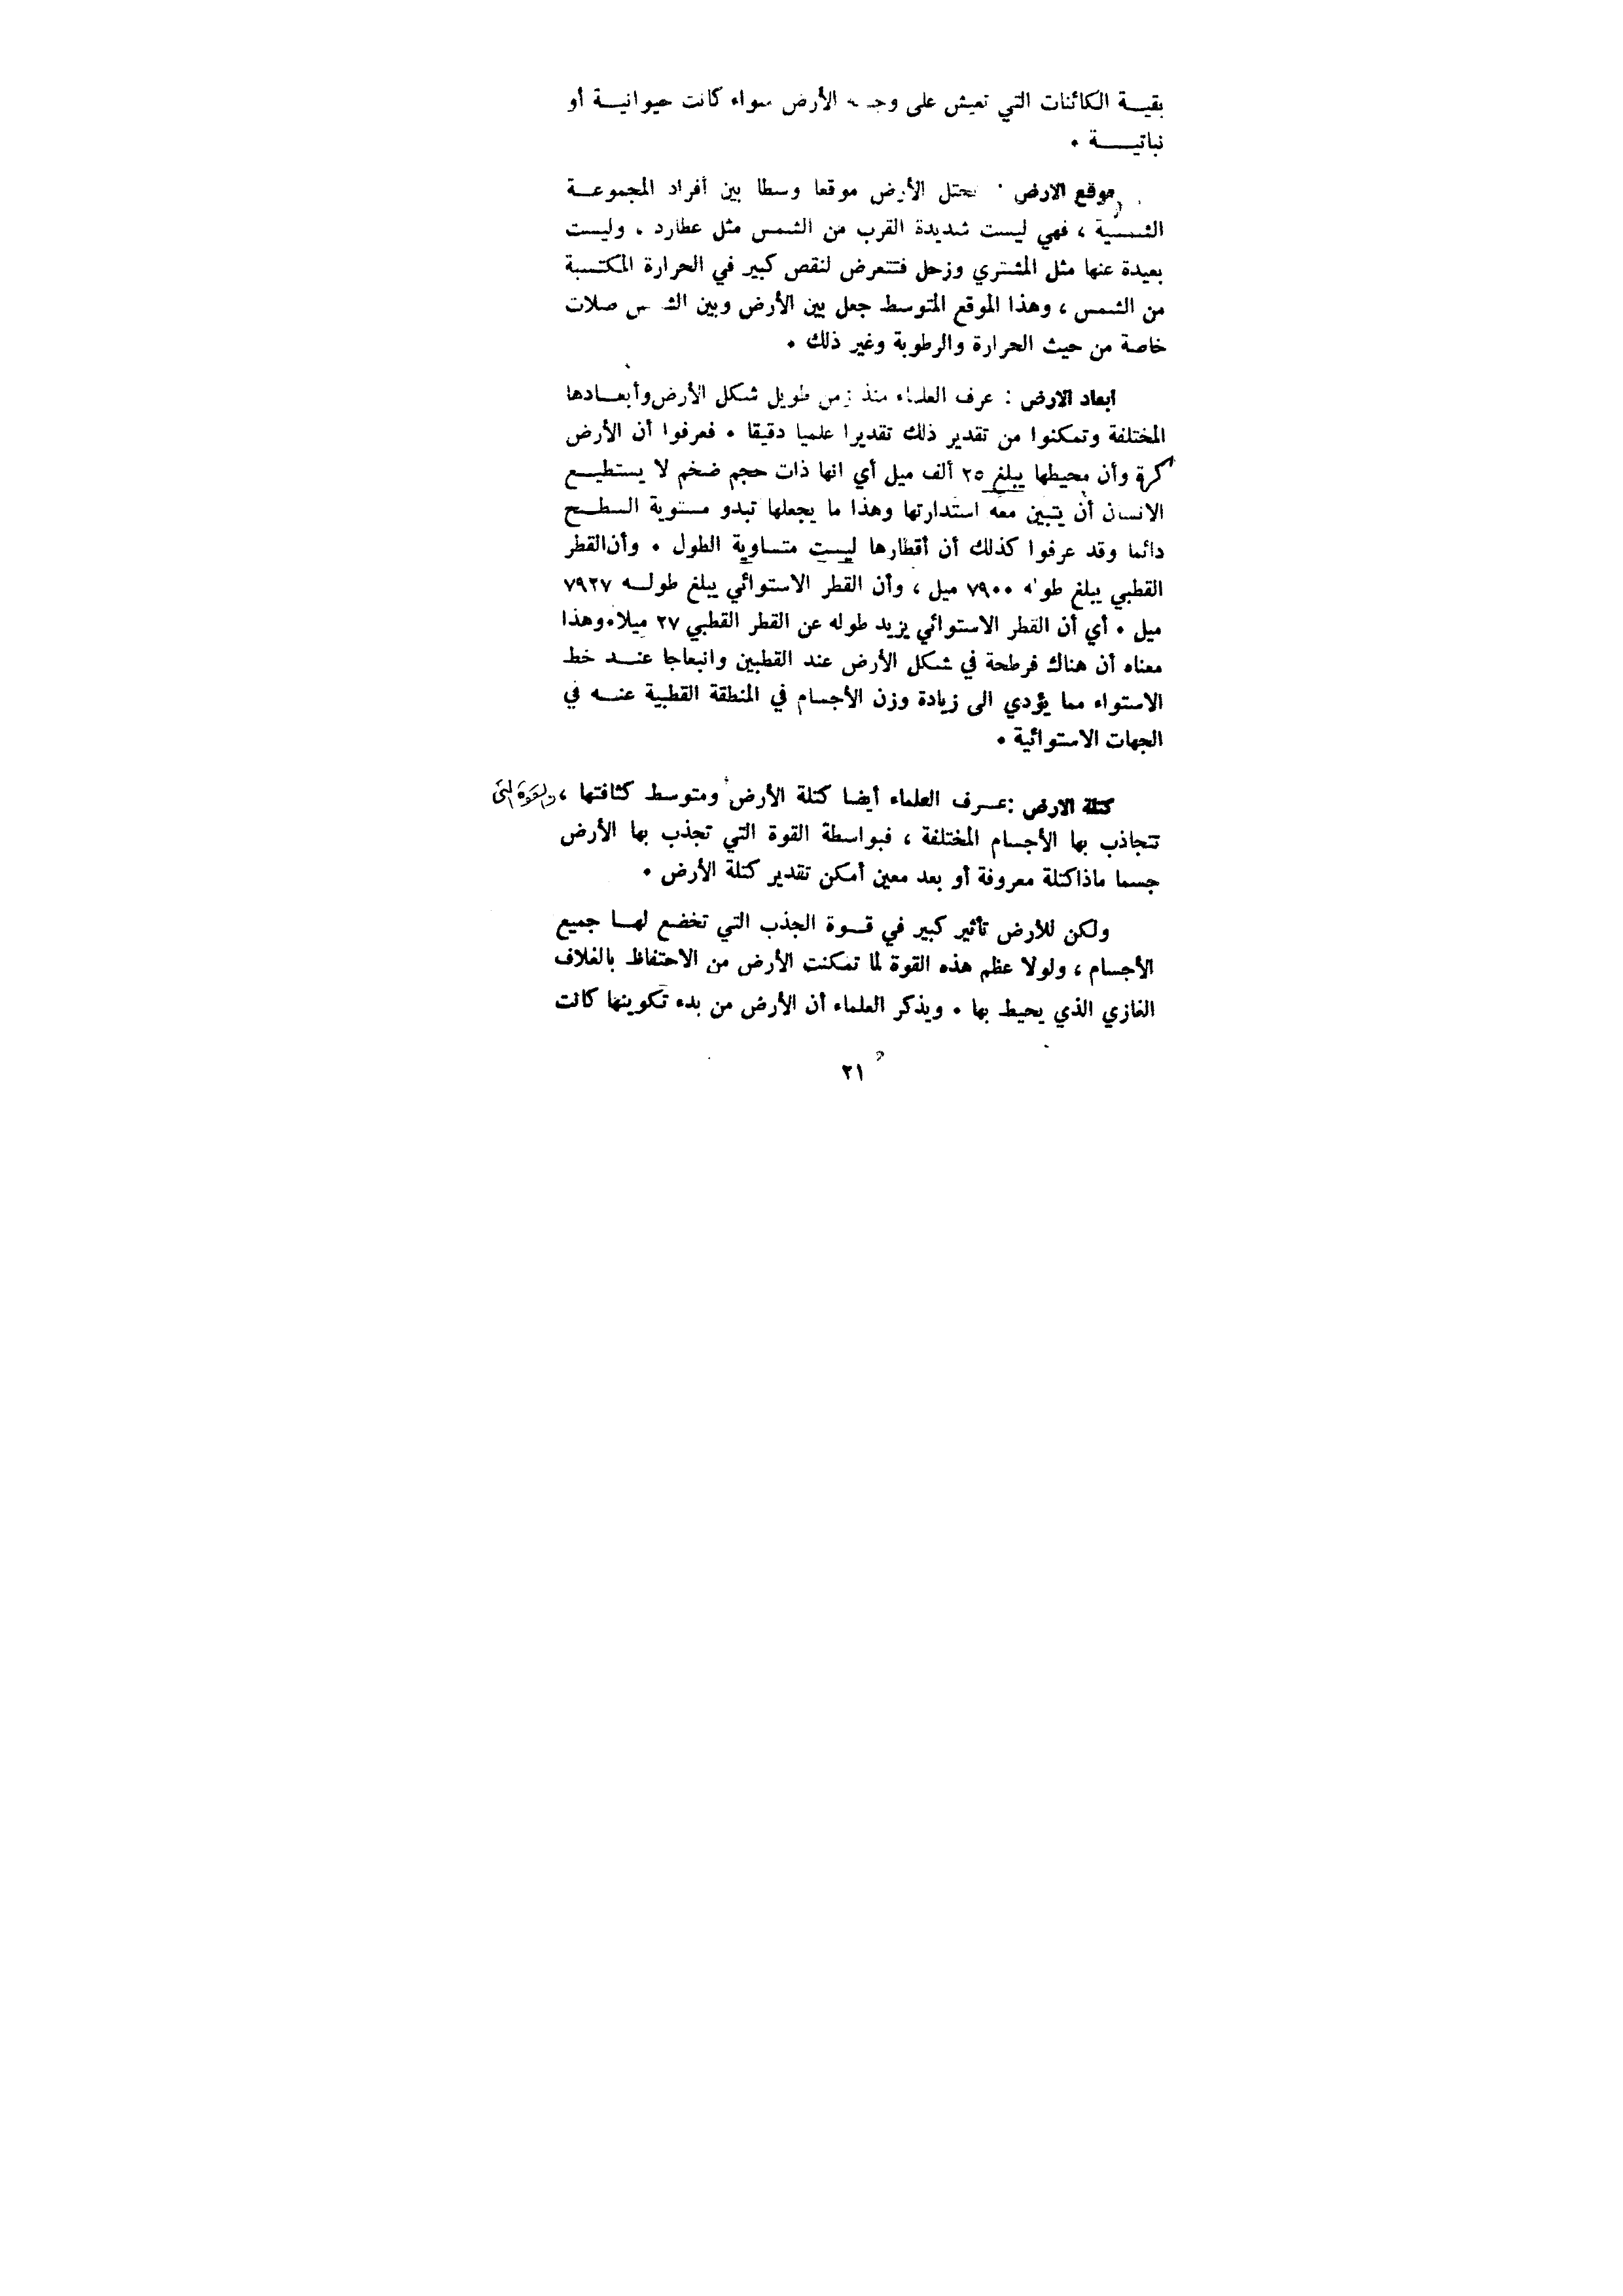 بقيــة الكائنات التي تعيش على وجه الأرض سواء كانت حيوانيــة أو
نباتيــــة ٠
موقع الارض : تحتل الأرض موقعا وسطا بين أفراد المجموعــة
الشمسية ، فهي ليست شديدة القرب من الشمس مثل عطارد ، وليست
بعيدة عنها مثل المشتري وزحل فتتعرض لنقص كبير في الحرارة المكتسبة
من الشمس ، وهذا الموقع المتوسط جعل بين الأرض وبين الشمس صلات
خاصة من حيث الحرارة والرطوبة وغير ذلك ٠
ابعاد الارض : عرف العلماء منذ زمن طويل شكل الأرض وأبعــادها
المختلفة وتمكنوا من تقدير ذلك تقديرا علميا دقيقا ٠ فعرفوا أن الأرض
كرة وأن محيطها يبلغ ٢٥ ألف ميل أي انها ذات حجم ضخم لا يستطيــع
الانسان أن يتبين معه استدارتها وهذا ما يجعلها تبدو مستوية السطــح
دائما وقد عرفوا كذلك أن أقطارها ليست متساوية الطول ٠ وأن القطر
القطبي يبلغ طوله ٧٩٠٠ ميل ، وأن القطر الاستوائي يبلغ طولــه ٧٩٢٧
ميل ٠ أي أن القطر الاستوائي يزيد طوله عن القطر القطبي ٢٧ ميلا٠وهذا
معناه أن هناك فرطحة في شكل الأرض عند القطبين وانبعاجا عنــد خط
الاستواء مما يؤدي الى زيادة وزن الأجسام في المنطقة القطبية عنــه في
الجهات الاستوائية ٠
كتلة الارض :عــرف العلماء أيضا كتلة الأرض ومتوسط كثافتها ، والقوة التى
تتجاذب بها الأجسام المختلفة ، فبواسطة القوة التي تجذب بها الأرض
جسما ماذاكتلة معروفة أو بعد معين أمكن تقدير كتلة الأرض ٠
ولكن للأرض تأثير كبير في قــوة الجذب التي تخضع لهــا جميع
الأجسام ، ولولا عظم هذه القوة لما تمكنت الأرض من الاحتفاظ بالغلاف
الغازي الذي يحيط بها ٠ ويذكر العلماء أن الأرض من بدء تكوينها كانت
٢١